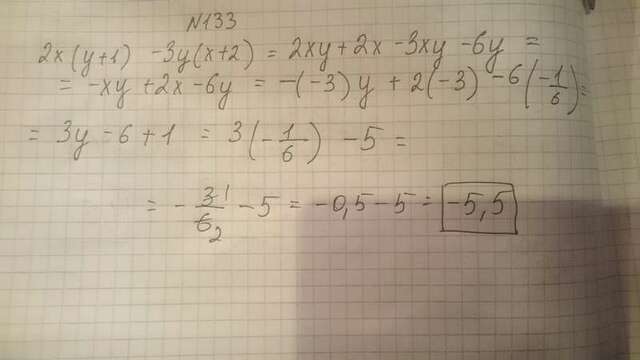 N133
2x(y+1) -3y(x+2) = 2xy+2x-3xy-6y =
= -xy+2x-6y = -(-3)y + 2(-3) -6(-1/6)=
= 3y-6+1 = 3(-1/6) -5 =
= - 3 1/6 2 -5 = -0,5-5= -5,5